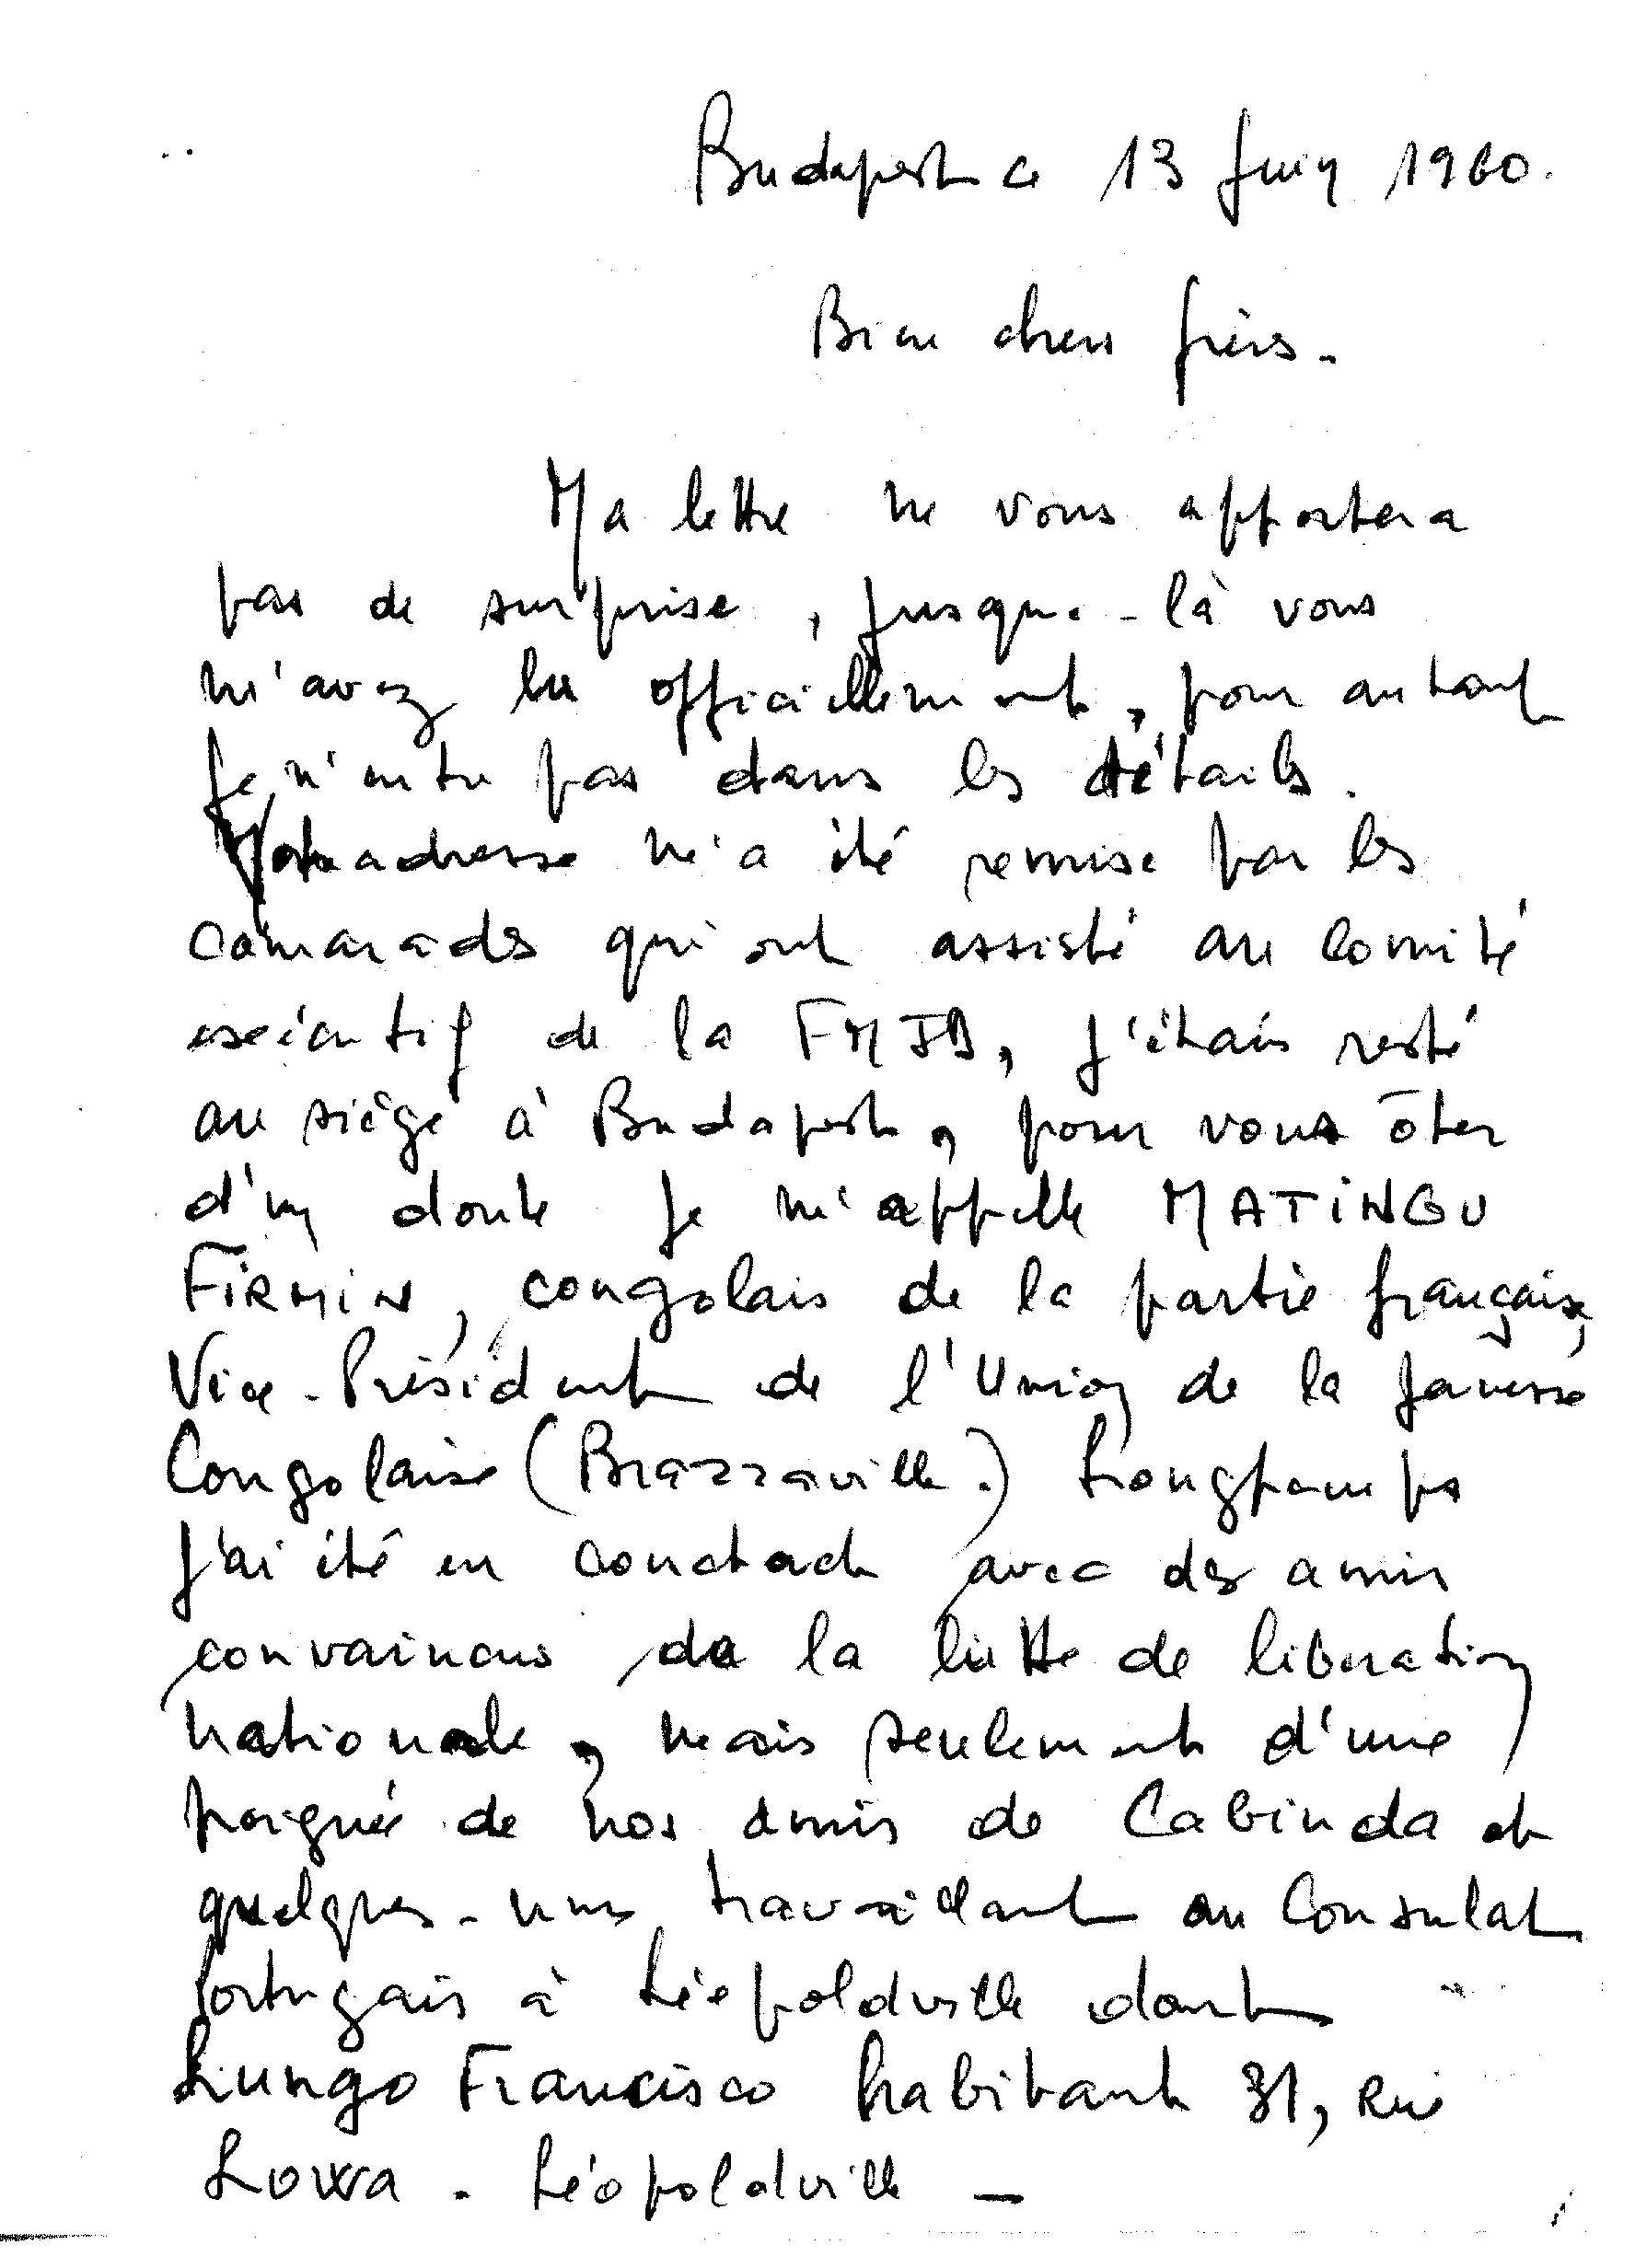 Budapest ce 13 Juin 1960.
Bien chers frères.
Ma lettre ne vous apportera
pas de surprise, jusque-là vous
m'avez lu officiellement, pour autant
je n'entre pas dans les détails.
Votre adresse m'a été remise par les
camarades qui ont assisté au Comité
exécutif de la FMJD, j'étais resté
au siège à Budapest, pour vous ôter
d'un doute je m'appelle MATINGU
FIRMIN, congolais de la partie française,
Vice-Président de l'Union de la Jeunesse
Congolaise (Brazzaville.) Longtemps
j'ai été en conctact avec des amis
convaincus de la lutte de libération
nationale, mais seulement d'une
poignée de nos amis de Cabinda et
quelques-uns travaillant au Consulat
Portugais à Léopoldville dont
Lungo Francisco habitant 31, Rue
Lowa - Léopoldville -